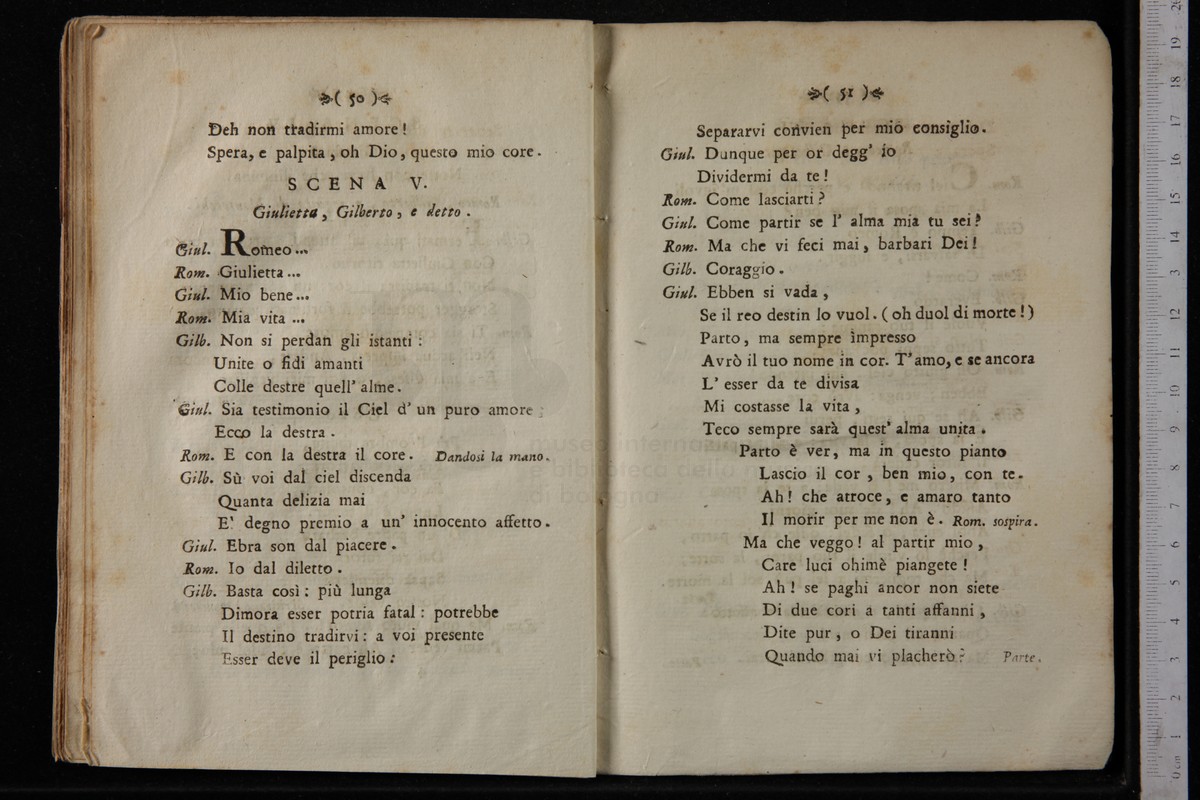 ( 50 )
Deh non tradirmi amore!
Spera, e palpita, oh Dio, questo mio core.
SCENA V.
Giulietta, Gilberto, e detto.
Giul. Romeo...
Rom. Giulietta...
Giul. Mio bene...
Rom. Mia vita ...
Gilb. Non si perdan gli istanti:
Unite o fidi amanti
Colle destre quell' alme.
Giul. Sia testimonio il Ciel d' un puro amore;
Ecco la destra.
Rom. E con la destra il core. Dandosi la mano.
Gilb. Sù voi dal ciel discenda
Quanta delizia mai
E' degno premio a un' innocento affetto.
Giul. Ebra son dal piacere.
Rom. Io dal diletto.
Gilb. Basta così: più lunga
Dimora esser potria fatal: potrebbe
Il destino tradirvi: a voi presente
Esser deve il periglio:
( 51 )
Separarvi convien per mio consiglio.
Giul. Dunque per or degg' io
Dividermi da te!
Rom. Come lasciarti?
Giul. Come partir se l' alma mia tu sei?
Rom. Ma che vi feci mai, barbari Dei!
Gilb. Coraggio.
Giul. Ebben si vada,
Se il reo destin lo vuol. (oh duol di morte!)
Parto, ma sempre impresso
Avrò il tuo nome in cor. T' amo, e se ancora
L' esser da te divisa
Mi costasse la vita,
Teco sempre sarà quest' alma unita.
Parto è ver, ma in questo pianto
Lascio il cor, ben mio, con te.
Ah! che atroce, e amaro tanto
Il morir per me non è. Rom. sospira.
Ma che veggo! al partir mio,
Care luci ohimè piangete!
Ah! se paghi ancor non siete
Di due cori a tanti affanni,
Dite pur, o Dei tiranni
Quando mai vi placherò? Parte.
museo internazionale
e biblioteca della
di bologna